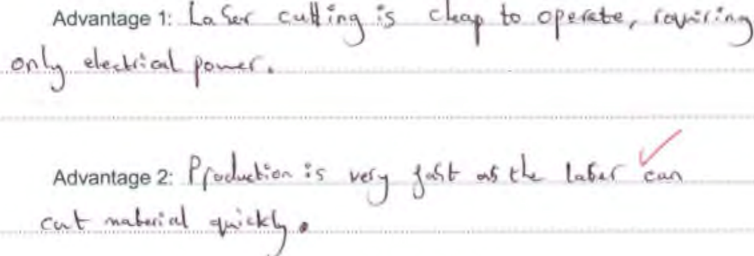 Advantage 1: Laser cutting is cheap to operate, requiring
only electrical power.
Advantage 2: Production is very fast as the laser can
cut material quickly.